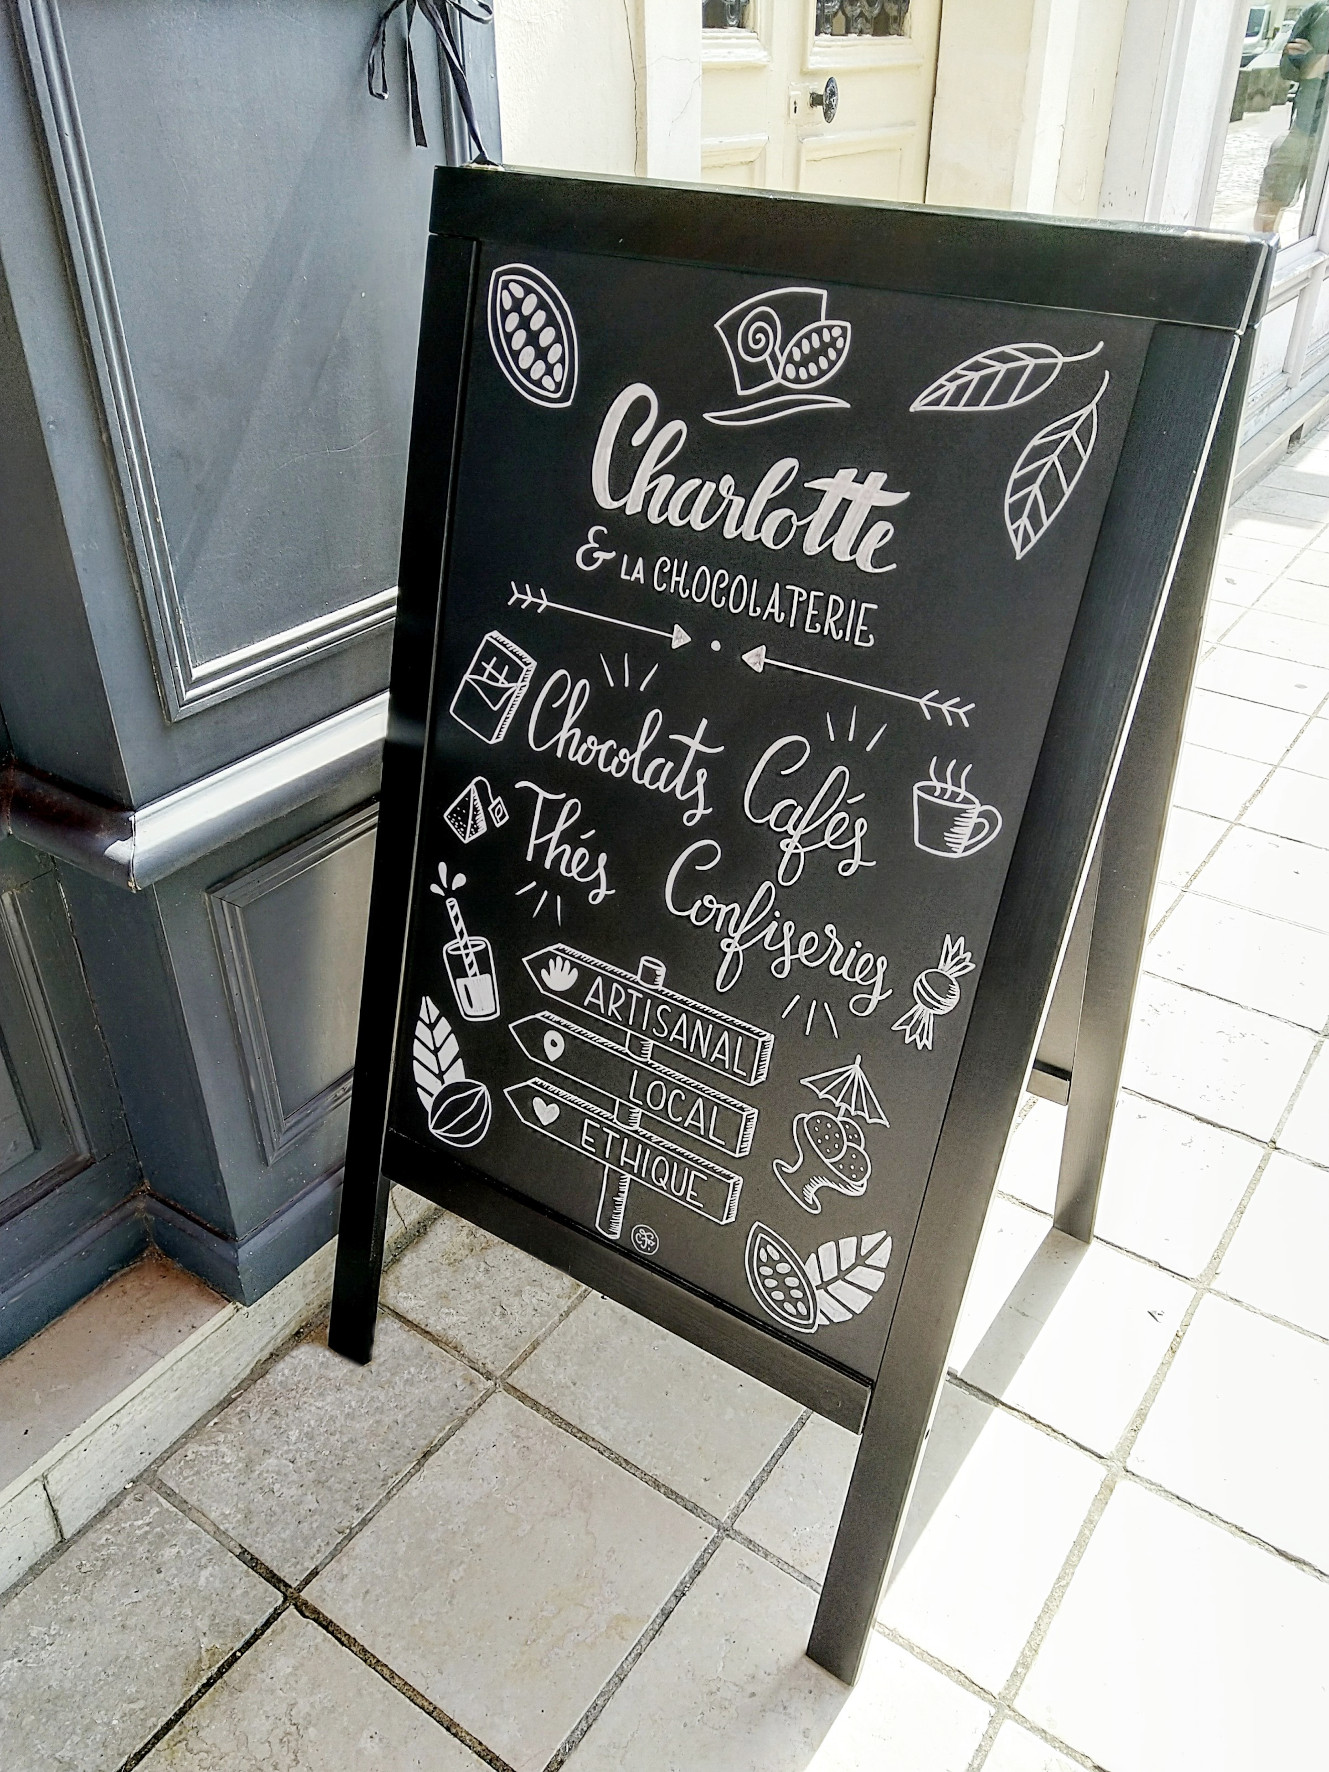 Charlotte
& LA CHOCOLATERIE
Chocolats Cafés
Thés Confiseries
ARTISANAL
LOCAL
ETHIQUE